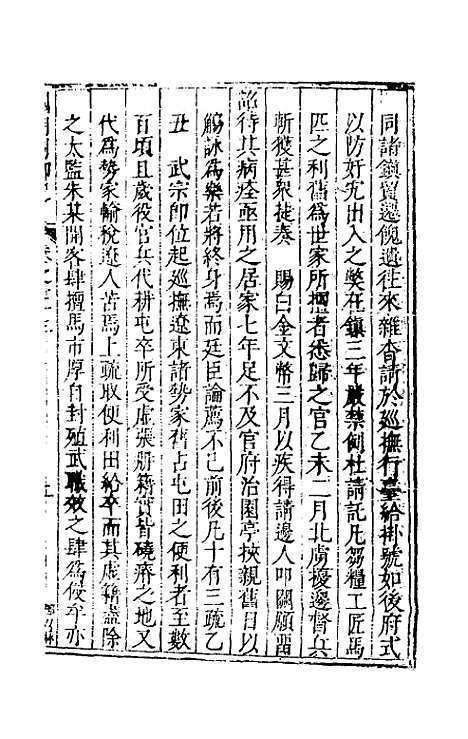 同諸鎮貿遷餽遺往來雜沓請於巡撫行臺給掛號如後府式
以防奸宄出入之獘在鎮三年嚴禁倒杜請託凡芻糧工匠馬
匹之利舊為世家所擅者悉歸之官乙未二月北虜擾邊督兵
斬獲甚衆徒奏　賜白金文幣三月以疾得請邊人叩關願畱
詔待其病痊亟用之居家七年足不及官府治園亭挾親舊日以
觴詠為樂若將終身焉而廷臣論薦不已前後凡十有三疏乙
丑　武宗卽位起巡撫遼東諸勢家舊占屯田之便利者至數
百頃且歲役官兵代耕屯卒所受虛張册籍實皆磽瘠之地又
代為勢家輸稅遼人苦焉上疏取便利田給卒而其虛籍盡除
之太監朱某開客肆擅馬市厚自封殖武職效之肆為侵牟亦
卷之